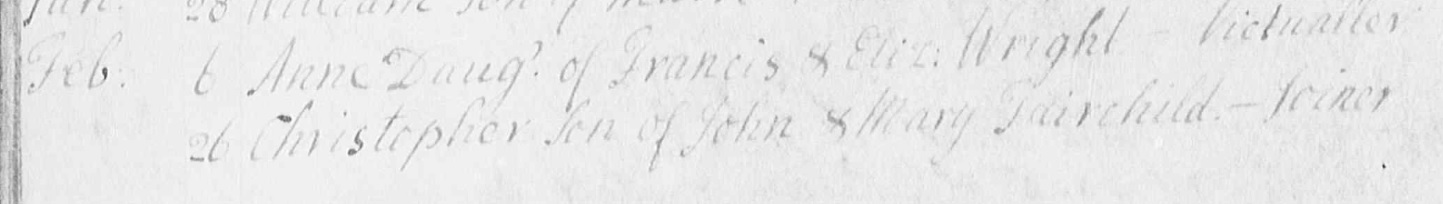 Jan: 28 William Son of
Feb: 6 Anne Daugr. of Francis & Eliz: Wright - Victualler
26 Christopher Son of John & Mary Fairchild. - Joiner